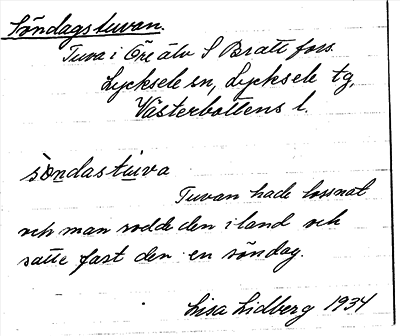 Söndagstuvan.
Tuva i Öre älv S Bratt fors.
Lycksele sn, Lycksele tg,
Västerbottens l.
söndastuva
Tuvan hade lossnat
och man rodde den i land och
satte fast den en söndag.
Lisa Lidberg 1934